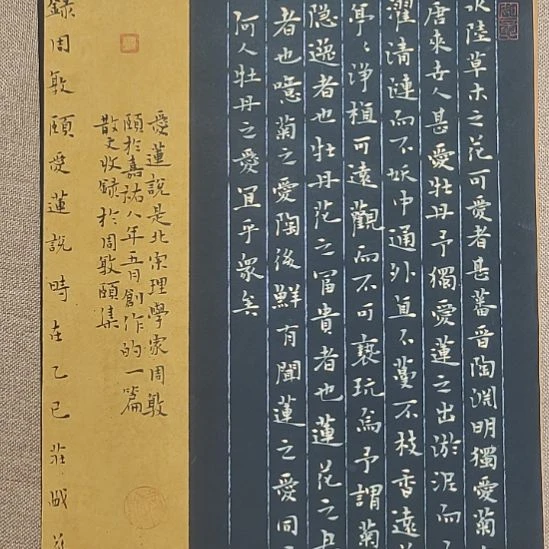 水陸草木之花可愛者甚蕃晉陶淵明獨愛菊
唐來世人甚愛牡丹予獨愛蓮之出淤泥而
濯清漣而不妖中通外直不蔓不枝香遠
亭〻淨植可遠觀而不可褻玩焉予謂菊
隱逸者也牡丹花之富貴者也蓮花之
者也噫菊之愛陶後鮮有聞蓮之愛同
何人牡丹之愛宜乎眾矣
愛蓮說是北宋理學家周敦
頤於嘉祐八年五月創作的一篇
散文收錄於周敦頤集
錄周敦頤愛蓮說時在乙巳莊